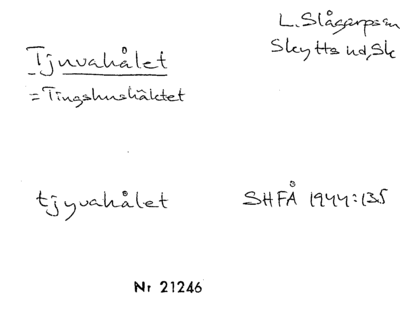 L. Slågarpssn
Skytts hd, Sk
Tjuvahålet
= Tingshushäktet
tjyvahålet
SHFÅ 1944:135
Nr 21246